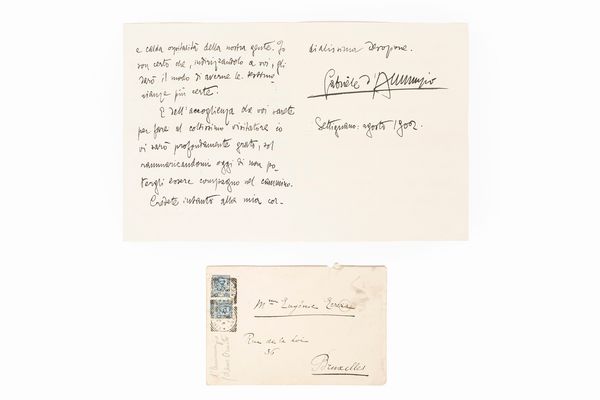 e calda ospitalità della nostra gente. Io
son certo che, indirizzandolo a voi, gli
sarò il modo di averne le testimo-
nianze più certe.
E dell'accoglienza da voi sarete
per fare al coltissimo visitatore io
vi sarò profondamente grato, sol
rammaricandomi oggi di non po-
tergli essere compagno nel cammino.
Credete intanto alla mia cor-
dialissima devozione.
Gabriele d'Annunzio
Settignano: agosto 1902.
Mme Eugénie
Rue de la Loi
36
Bruxelles